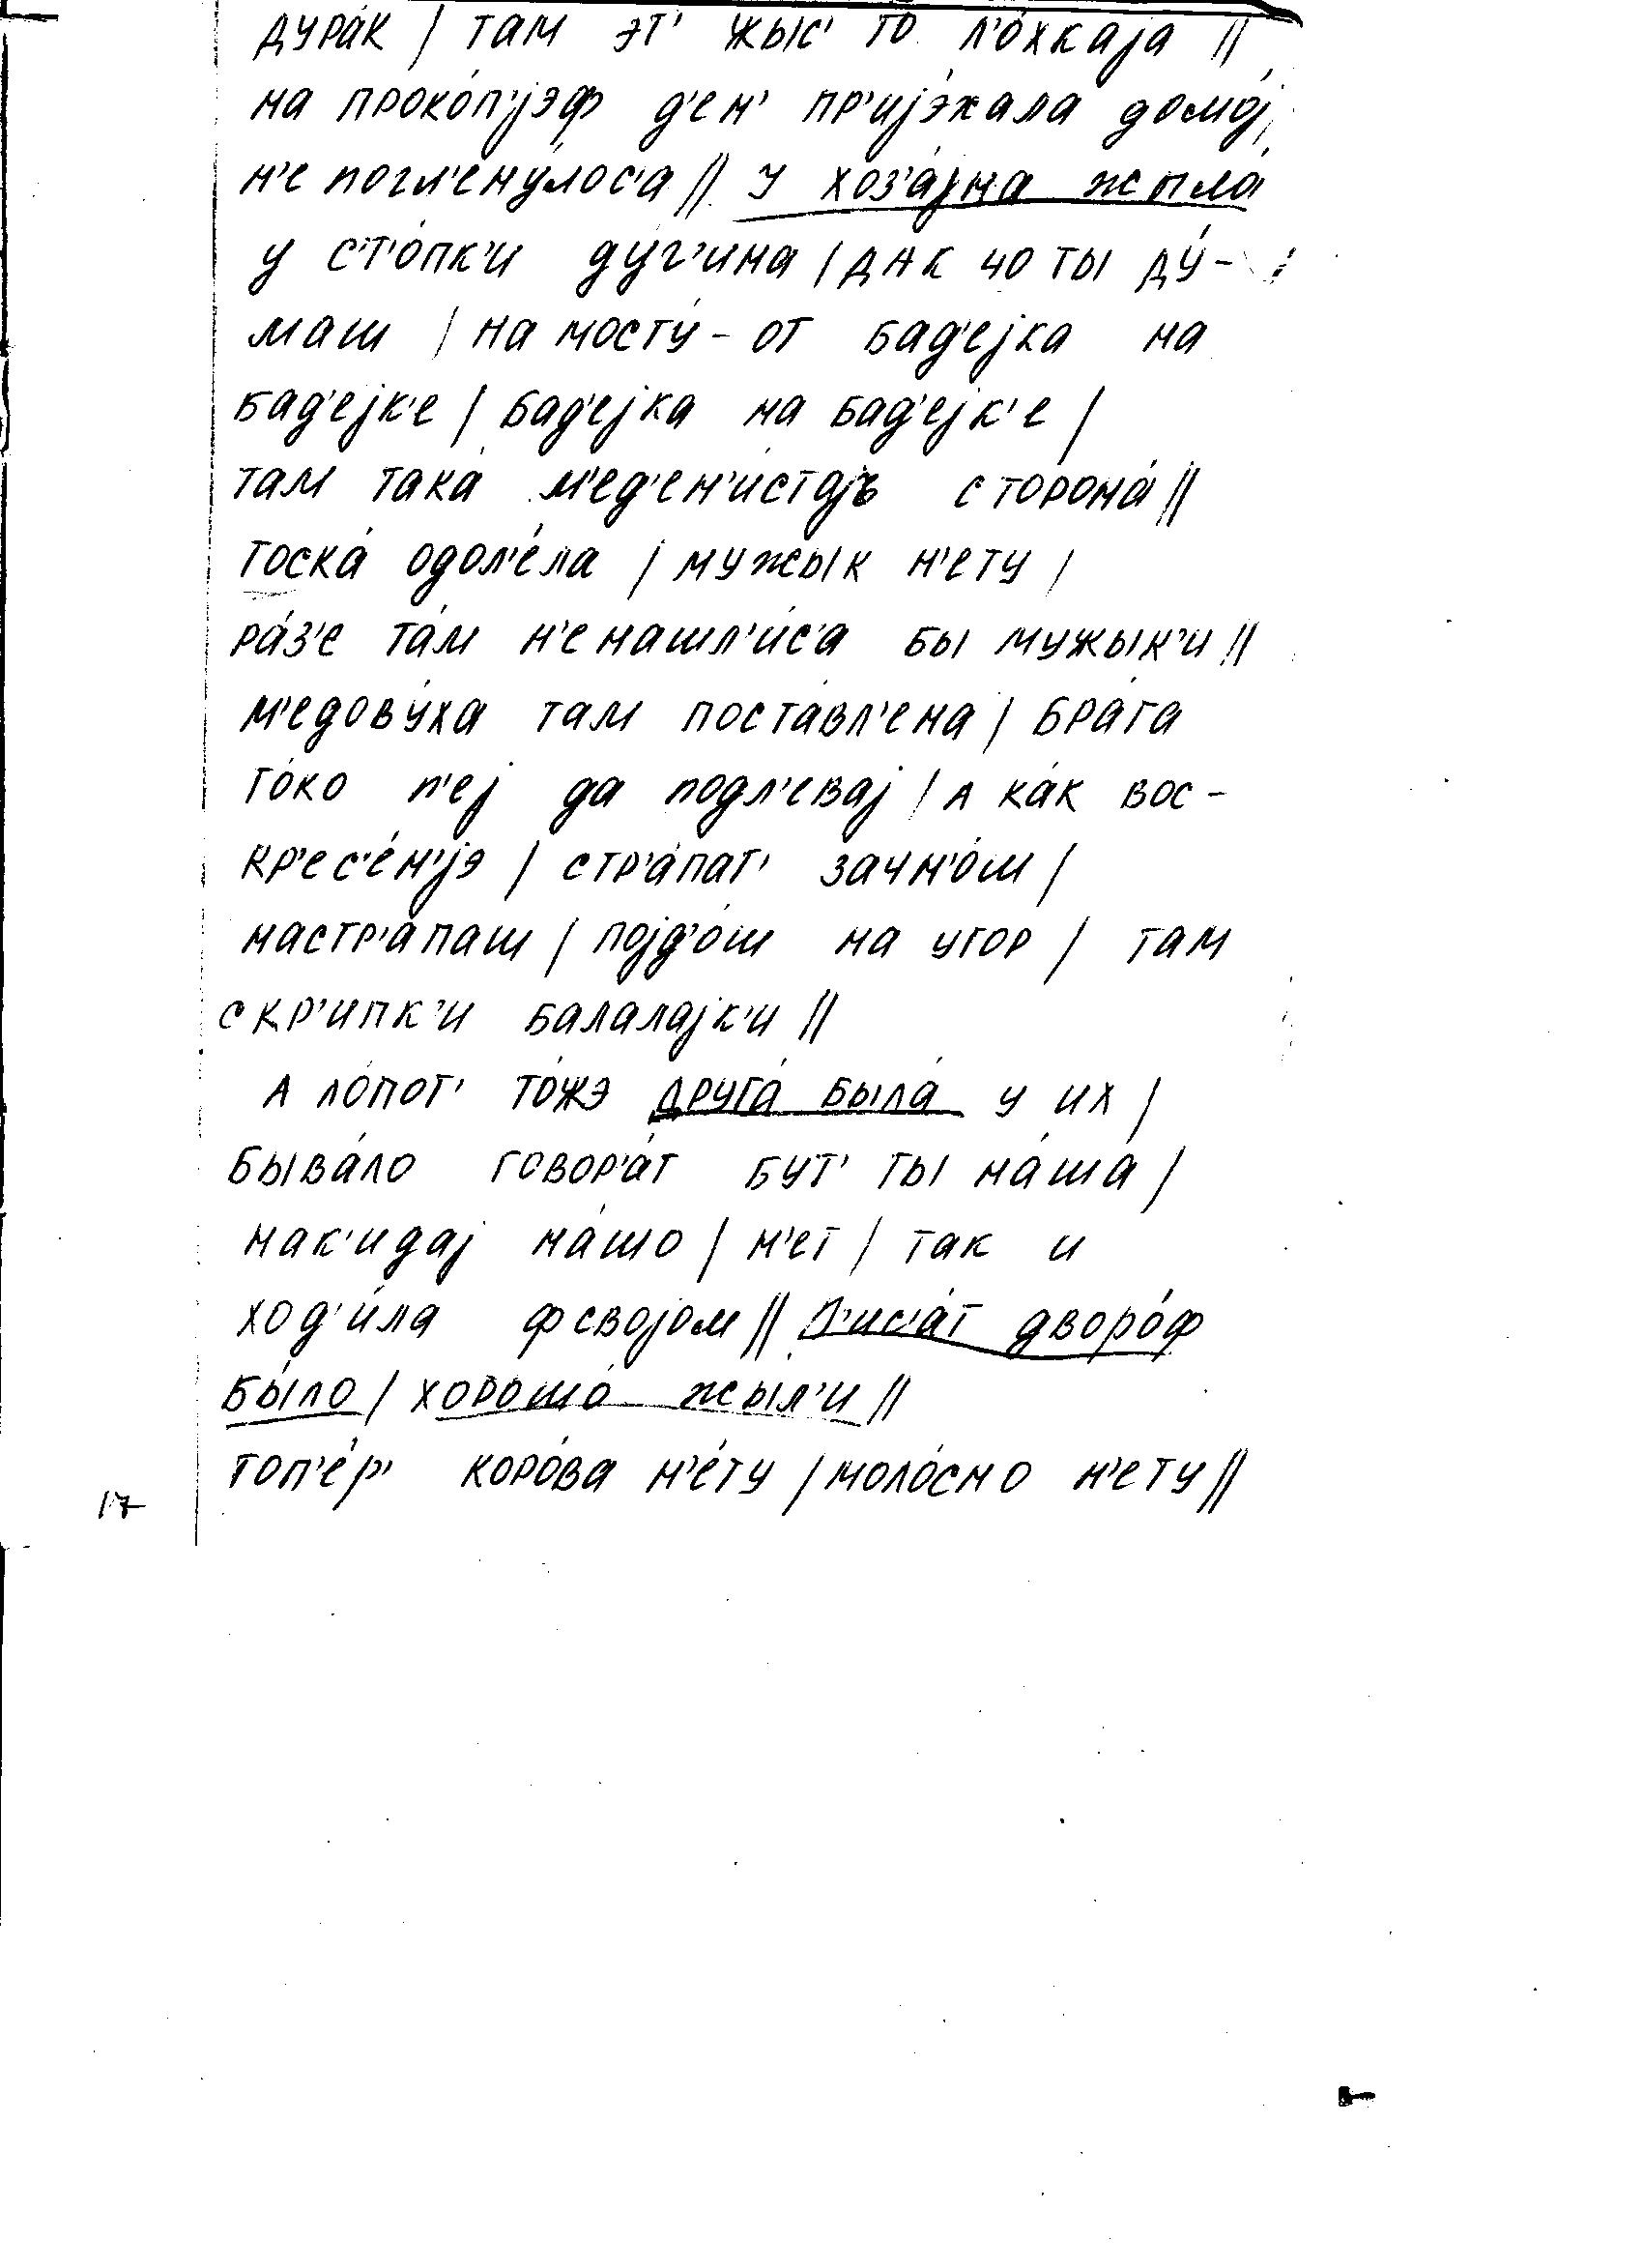 дура́к / там эт' жыс' то л'о́хкаjа //
на проко́п'jэф д'ен' пр'иjэ́хала домо́j,
н'е погл'ену́лос'а // у хоз'а́jина жыла́
у с'т'о́пк'и ду́г'ина / дак чо ты ду́-
маш / на мосту́-от бад'еjка на
бад'еjк'е / бад'еjка на бад'еjк'е /
там така́ м'ед'ен'и́стаjъ сторона́ //
тоска́ одол'е́ла / мужы́к н'ету /
ра́з'е та́м н'е нашл'и́с'а бы мужык'и //
м'едову́ха там поста́вл'ена / бра́га
то́ко п'еj да подл'еваj / а ка́к вос-
кр'ес'е́н'jэ / стр'а́пат' зачн'о́ш /
настр'а́паш / поjд'о́ш на угор / там
скр'ипк'и балалаjк'и //
А ло́пот' то́жэ друга́ была́ у их /
быва́ло говор'а́т бут' ты на́ша /
нак'идаj на́шо / н'ет / так и
ход'и́ла фсвоjом // П'ис'а́т дворо́ф
бы́ло / хорошо́ жыл'и //
топ'е́р' коро́ва н'е́ту / моло́сно н'ету //
17